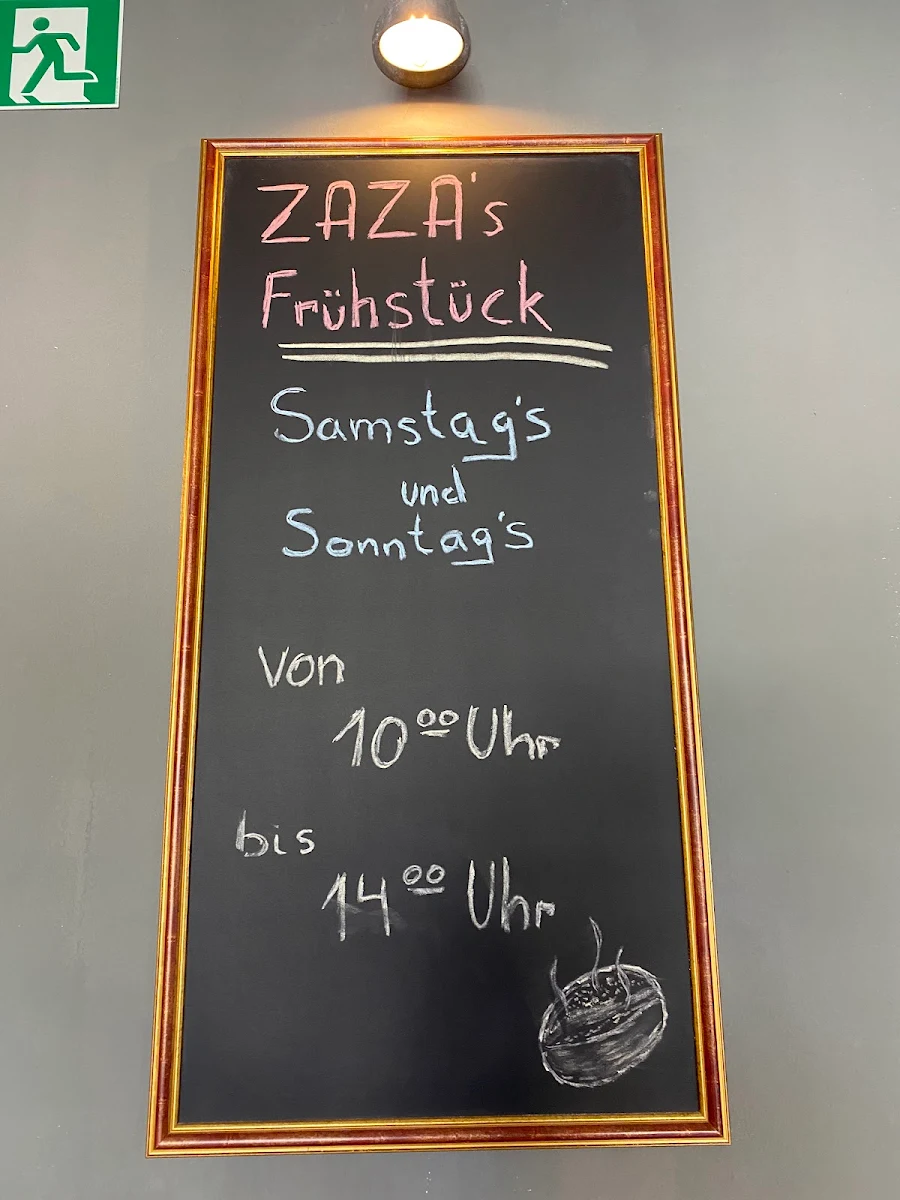 ZAZA's
Frühstück
Samstag's
und
Sonntag's
Von
10⁰⁰ Uhr
bis
14⁰⁰ Uhr